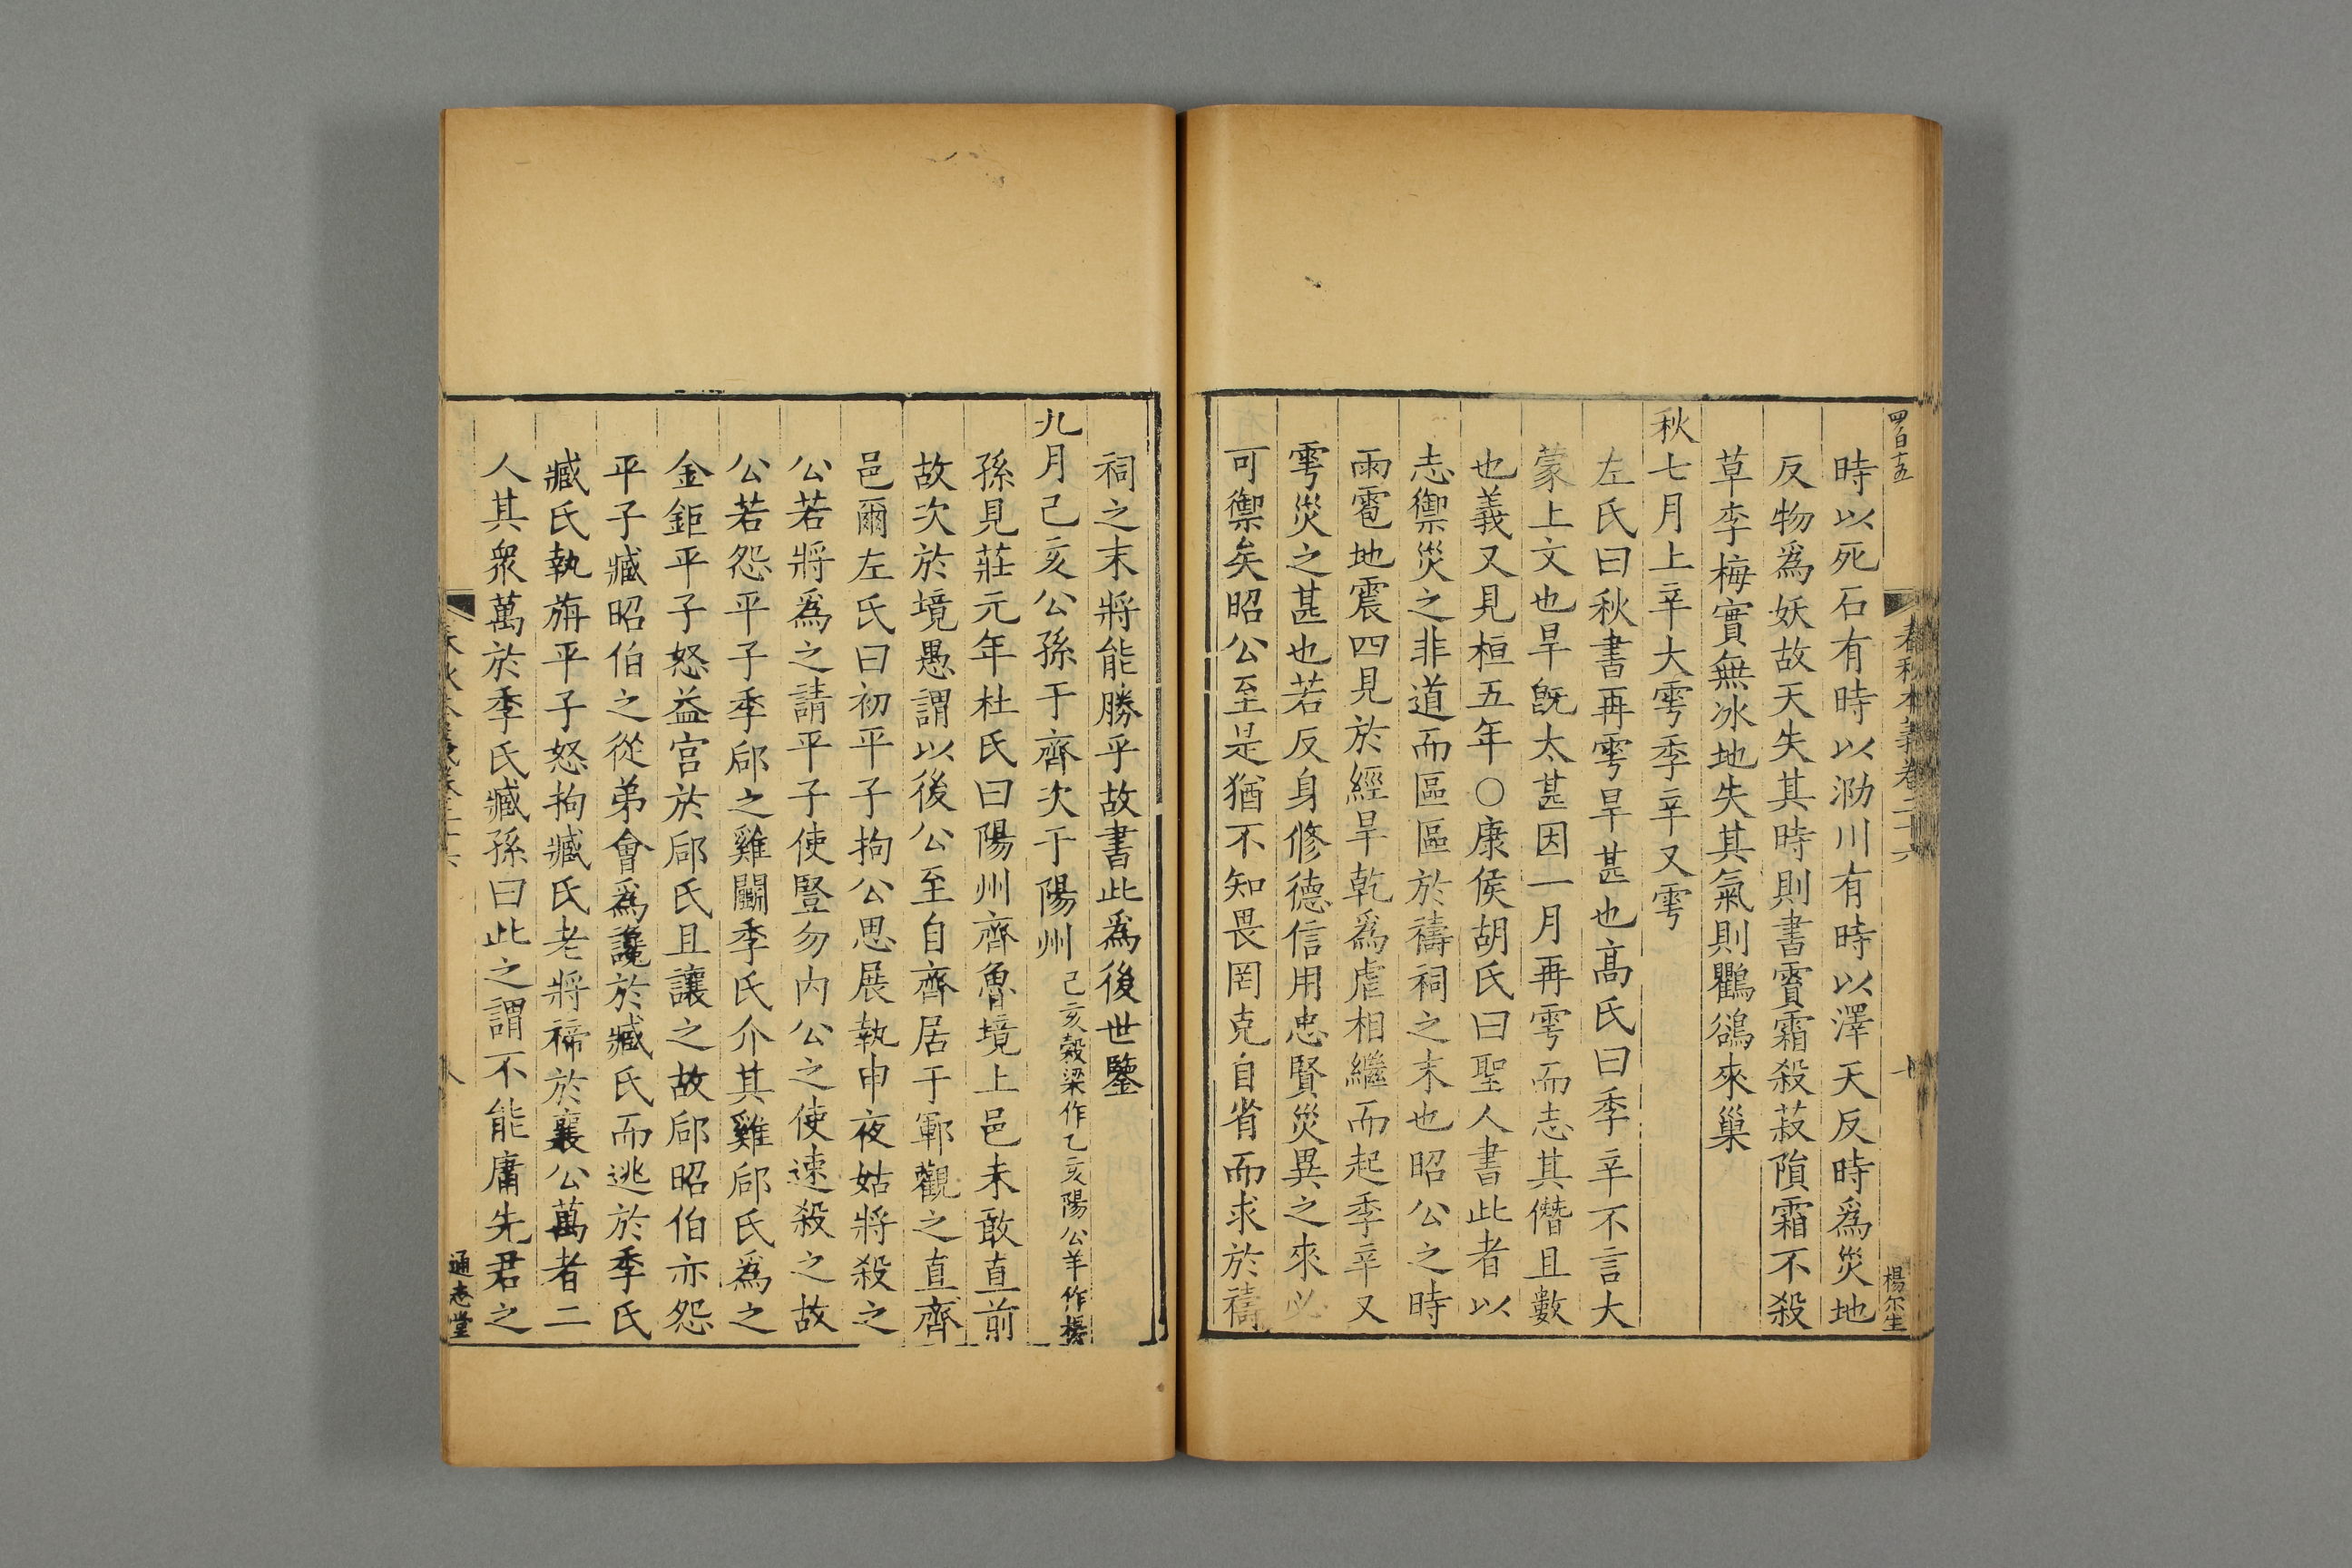 四百十五
春秋本義卷二十六
楊尔生
時以死石有時以泐川有時以澤天反時爲災地
反物爲妖故天失其時則書霣霜殺菽隕霜不殺
草李梅實無冰地失其氣則鸜鵒來巢
秋七月上辛大雩季辛又雩
左氏曰秋書再雩旱甚也髙氏曰季辛不言大
蒙上文也旱旣太甚因一月再雩而志其僭且數
也義又見桓五年○康侯胡氏曰聖人書此者以
志禦災之非道而區區於禱祠之末也昭公之時
雨雹地震四見於經旱乾爲虐相繼而起季辛又
雩災之甚也若反身修德信用忠賢災異之來必
可禦矣昭公至是猶不知畏罔克自省而求於禱
祠之末將能勝乎故書此爲後世鑒
九月己亥公孫于齊次于陽州己亥穀梁作乙亥陽公羊作揚
孫見莊元年杜氏曰陽州齊魯境上邑未敢直前
故次於境愚謂以後公至自齊居于鄆觀之直齊
邑爾左氏曰初平子拘公思展執申夜姑將殺之
公若將爲之請平子使豎勿内公之使速殺之故
公若怨平子季郈之雞鬭季氏介其雞郈氏爲之
金鉅平子怒益宫於郈氏且讓之故郈昭伯亦怨
平子臧昭伯之從弟會爲讒於臧氏而逃於季氏
臧氏執旃平子怒拘臧氏老將禘於襄公萬者二
人其衆萬於季氏臧孫曰此之謂不能庸先君之
通志堂